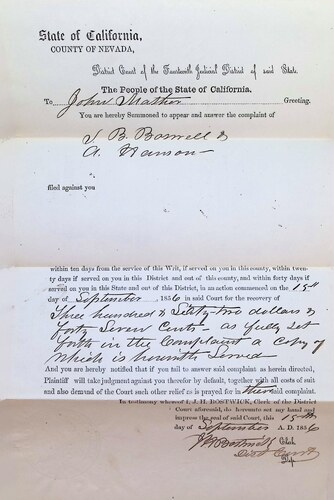 State of California,
COUNTY OF NEVADA,
District Court of the Fourteenth Judicial District of said State.
The People of the State of California.
To John Mather Greeting.
You are hereby Summoned to appear and answer the complaint of
J B. Boswell &
A. Hanson
filed against you
within ten days from the service of this Writ, if served on you in this county, within twen-
ty days if served on you in this District and out of this county, and within forty days if
served on you in this State and out of this District, in an action commenced on the 15th
day of September, 1856 in said Court for the recovery of
Three hundred & Sixty-two dollars &
forty Seven Cents - as fully set
forth in the Complaint a Copy of
Which is herewith Served
And you are hereby notified that if you fail to answer said complaint as herein directed,
Plaintiff will take judgment against you therefor by default, together with all costs of suit
and also demand of the Court such other relief as is prayed for in their said complaint.
In testimony whereof I, J. H. BOSTWICK, Clerk of the District
Court aforesaid, do hereunto set my hand and
impress the seal of said Court, this 15th
day of September A. D. 1856
J H Bostwick Clerk
Dist Court